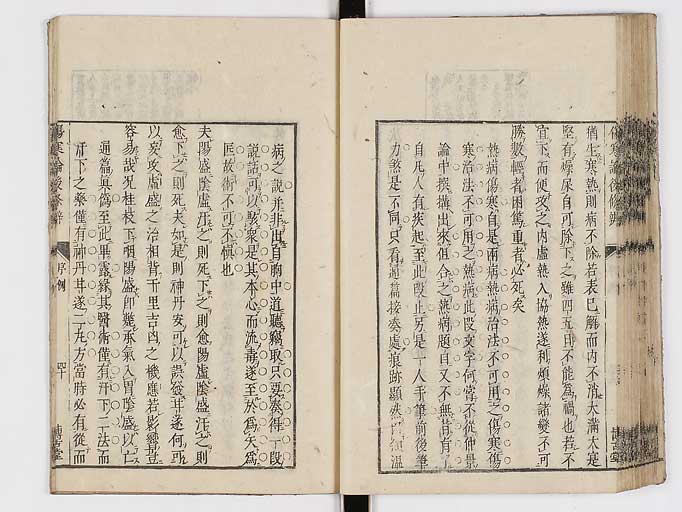 傷寒論後條辨
猶生寒熱則病不除若表已解而内不消大滿大寔
堅有燥屎自可除下之雖四五日不能為禍也若不
宜下而便攻之内虛熱入協熱遂利煩燥諸變不可
勝數輕者困篤重者必死矣
熱病傷寒自是兩病熱病治法不可用之傷寒傷
寒治法不可用之熱病此段文字何嘗不從仲景
論中撰攝出來但合之熱病題目又不無背有了
自凡人有疾起至此段止另是一人手筆前後筆
力煞是不同只看過篇接奏處痕跡顯然
病之說并非出自胸中道聽竊取只要奏得一段
說話可以駭衆是其本心而流毒遂至於為矢為
匠故術不可不慎也
夫陽盛陰虛汗之則死下之則愈陽虛陰盛汗之則
愈下之則死夫如是則神丹安可以誤發甘遂何可
以妄攻虛盛之治相背千里吉凶之機應若影響豈
容易哉况桂枝下咽陽盛即斃承氣入胃陰盛以亡
通篇真偽至此畢露緣其醫術僅有汗下二法而
汗下之藥僅有神丹甘遂二九方當時必有從而
傷寒論後條辨
序例
四十